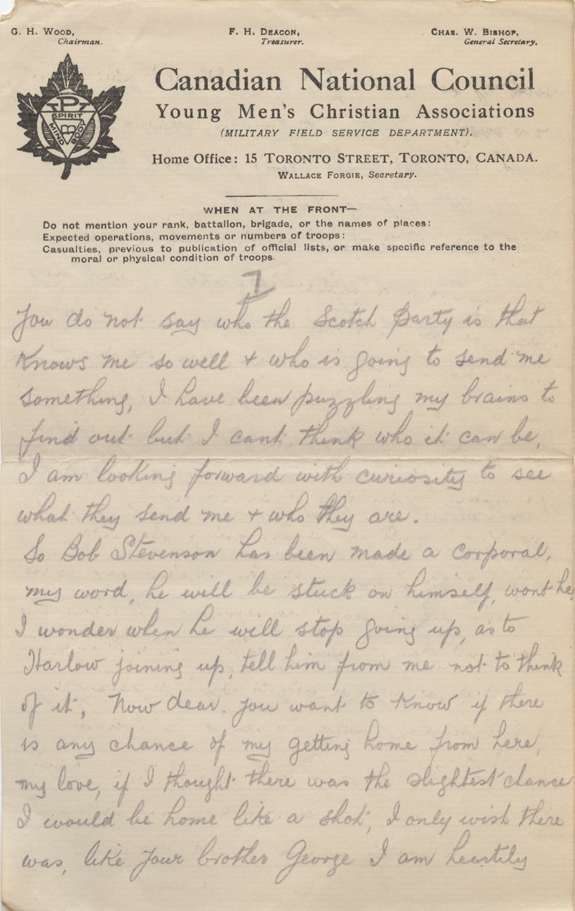 G. H. Wood,
Chairman.
F. H. Deacon,
Treasurer.
Chas. W. Bishop,
General Secretary.
Canadian National Council
Young Men's Christian Associations
(MILITARY FIELD SERVICE DEPARTMENT).
Home Office: 15 TORONTO STREET, TORONTO, CANADA.
WALLACE FORGIE, Secretary.
SPIRIT
MIND
BODY
WHEN AT THE FRONT—
Do not mention your rank, battalion, brigade, or the names of places:
Expected operations, movements or numbers of troops:
Casualties, previous to publication of official lists, or make specific reference to the
moral or physical condition of troops.
7
You do not say who the Scotch Party is that
Knows me so well + who is going to send me
something, I have been puzzling my brains to
find out but I cant think who it can be,
I am looking forward with curiosity to see
what they send me + who they are.
So Bob Stevenson has been made a corporal,
my word, he will be stuck on himself, wont he
I wonder when he will stop going up, as to
Harlow joining up, tell him from me not to think
of it, Now dear you want to Know if there
is any chance of my getting home from here,
my love, if I thought there was the slightest chance
I would be home like a shot, I only wish there
was, like your brother George I am heartily